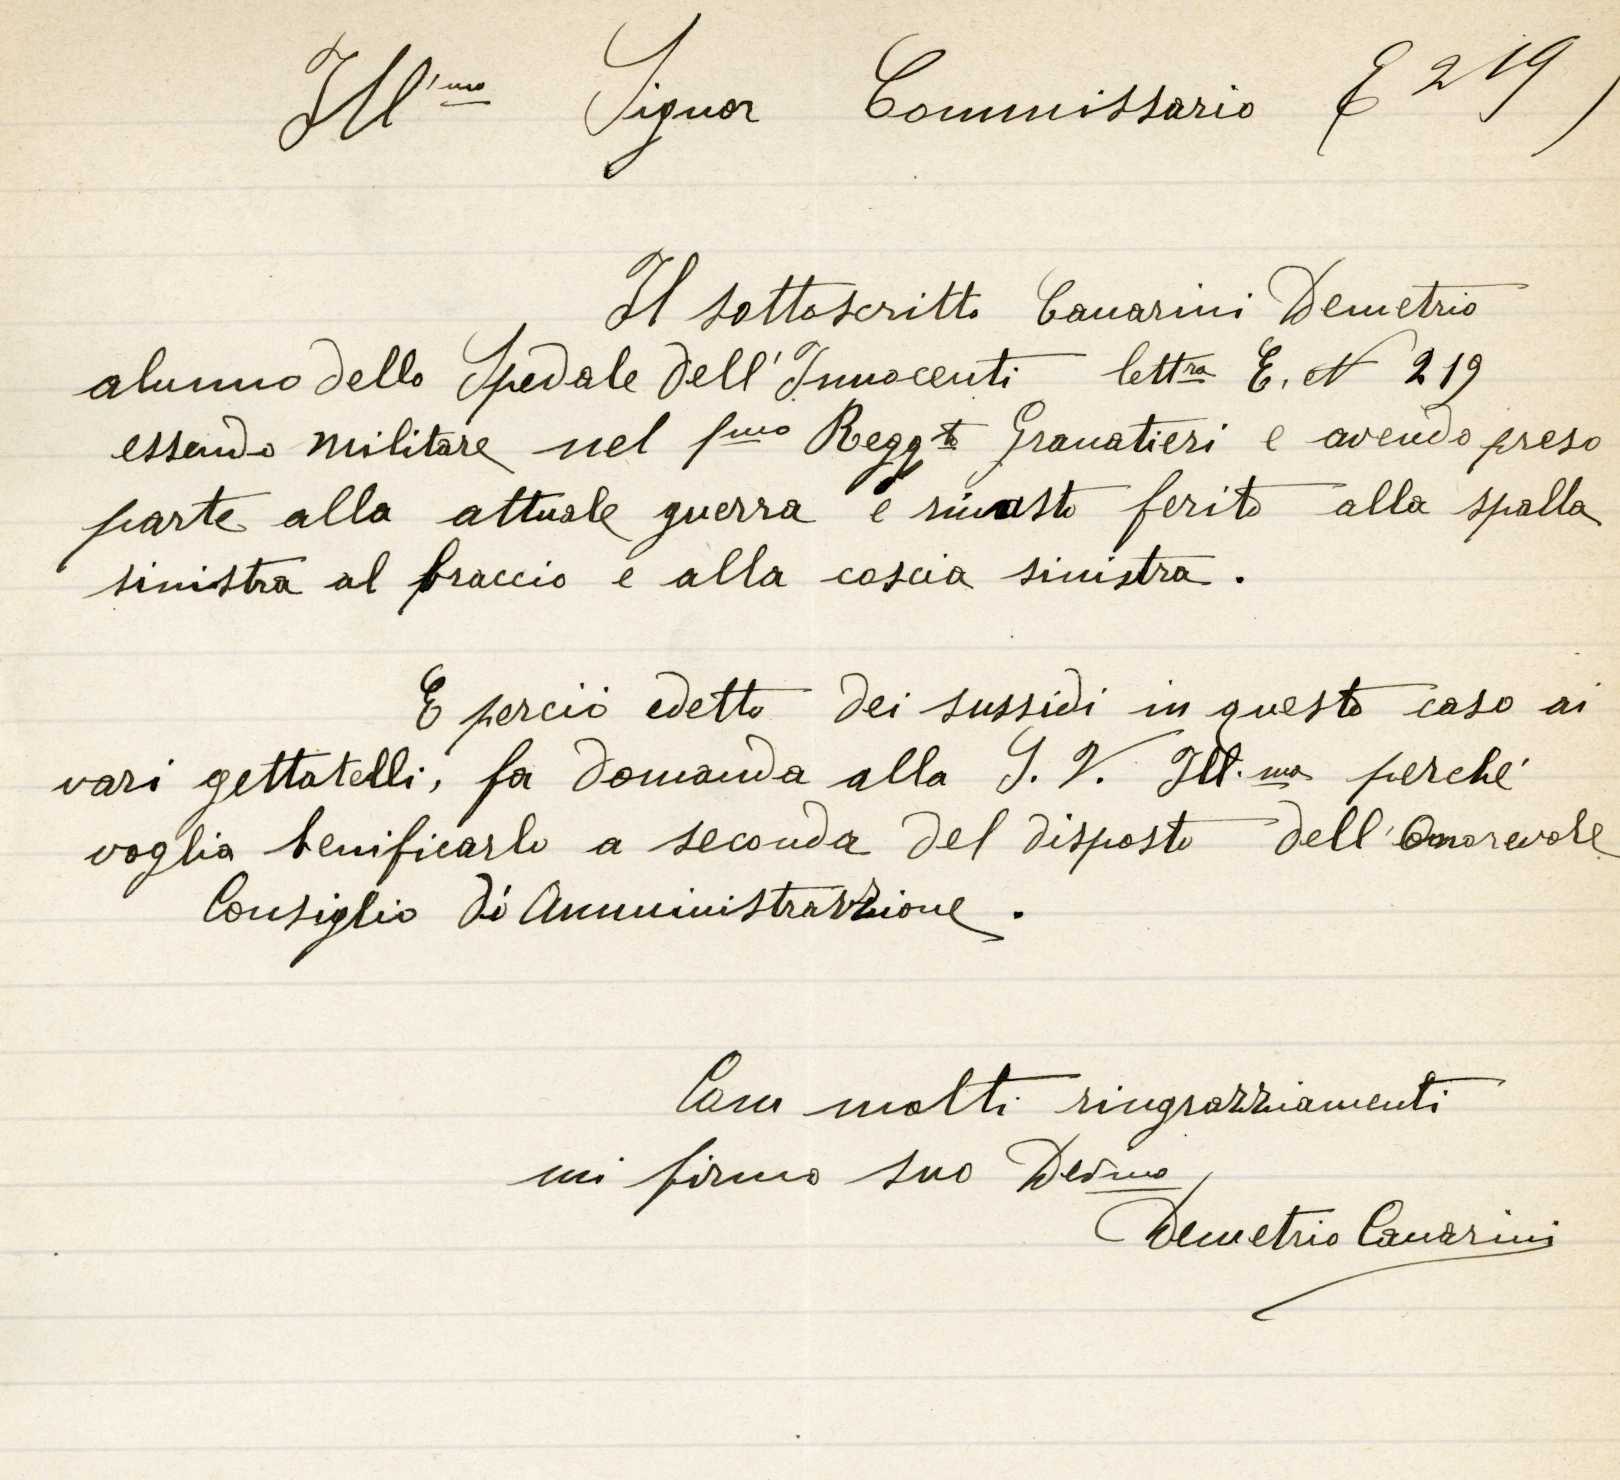 Ill'mo Signor Commissario E 219
Il sottoscritto Canarini Demetrio
alunno dello Spedale dell'Innocenti lettra E. N 219
essendo militare nel pmo Reggto Granatieri e avendo preso
parte alla attuale guerra è rimasto ferito alla spalla
sinistra al braccio e alla coscia sinistra.
E perciò edetto dei sussidi in questo caso ai
vari gettatelli, fa domanda alla S. V. Ill.ma perchè
voglia benificarlo a seconda del disposto dell'Onorevole
Consiglio di Amministrazzione.
Com molti ringrazziamenti
mi firmo suo Devmo
Demetrio Canarini